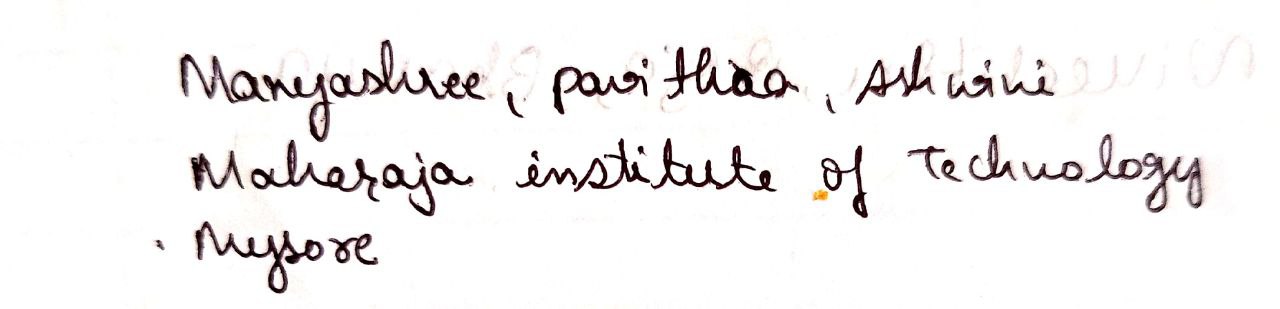 Manyashree, pavithra, Ashwini
Maharaja institute of Technology
Mysore